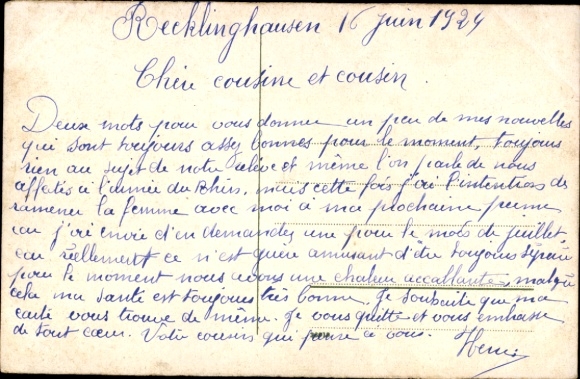 Recklinghausen 16 Juin 1924
Chère cousine et cousin.
Deux mots pour vous donner un peu de mes nouvelles
qui sont toujours assez bonnes pour le moment, toujours
rien au sujet de notre relève et même l'on parle de nous
affectés à l'armée du Rhin, mais cette fois j'ai l'intention de
ramener la femme avec moi à ma prochaine perme
car j'ai envie d'en demander une pour le mois de juillet
car réellement ce n'est guère amusant d'être toujours séparé
pour le moment nous avons une chaleur accablante, malgré
cela ma santé est toujours très bonne, je souhaite que ma
carte vous trouve de même. Je vous quitte et vous embrasse
de tout cœur. Votre cousin qui pense à vous.